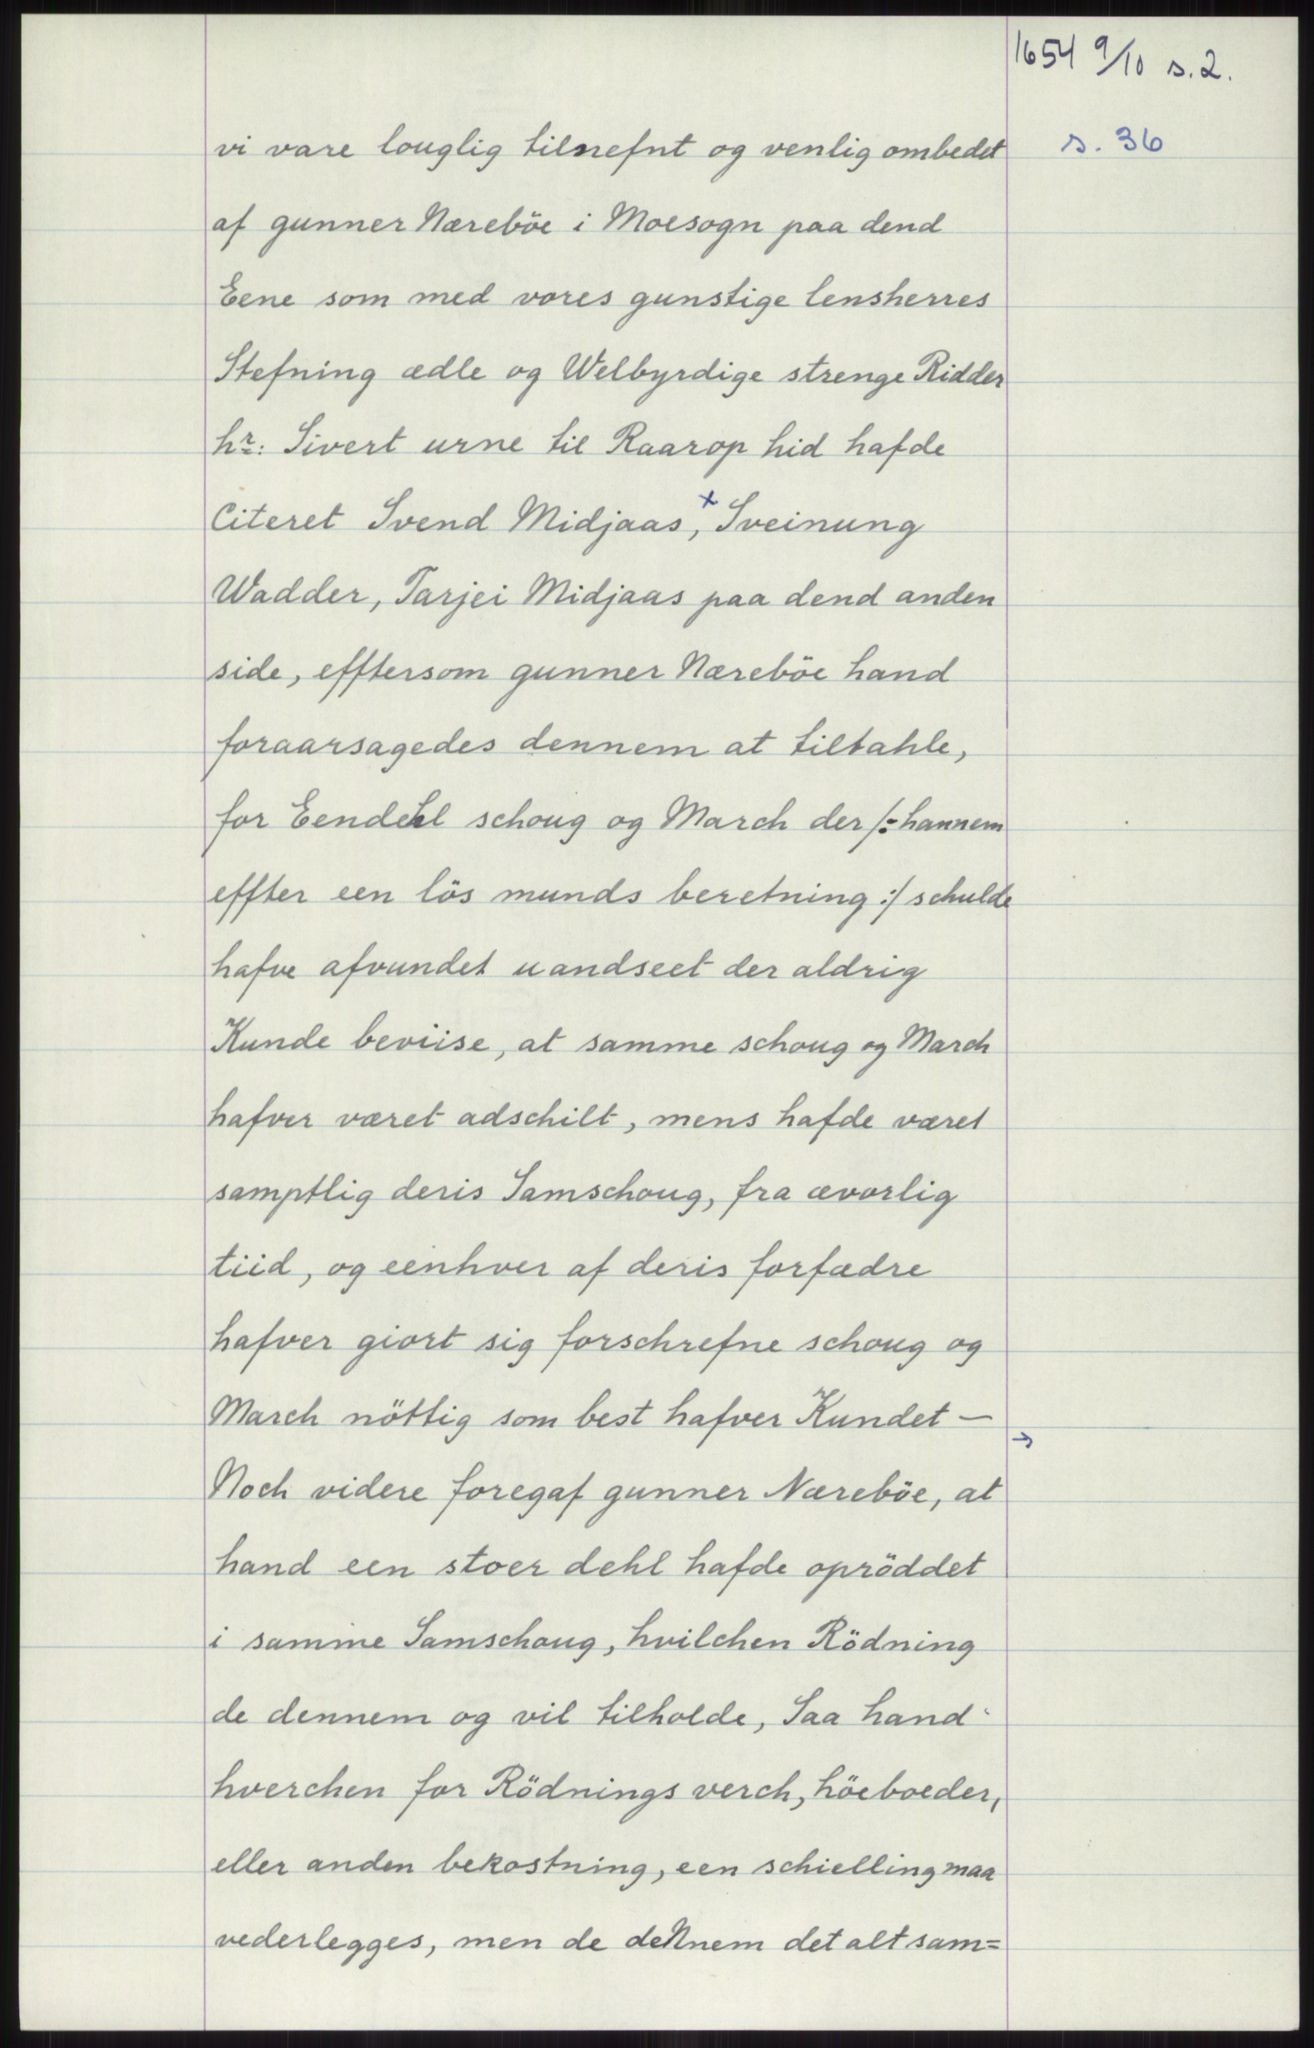 1654 9/10 s. 2.
s. 36
vi vare louglig tilnefnt og venlig ombedet
af gunner Næreböe i Moesogn paa dend
Eene som med vores gunstige lensherres
Stefning ædle og Welbyrdige strenge Ridder
hr: Sivert urne til Raarop hid hafde
Citeret Svend Midjaas,x Sveinung
Wadder, Tarjei Midjaas paa dend anden
side, efftersom gunner Næreböe hand
foraarsagedes dennem at tiltahle,
for Eendehl schoug og March der /: hannem
effter een lös munds beretning :/ schulde
hafve afvundet uandseet der aldrig
Kunde beviise, at samme schoug og March
hafver været adschilt, mens hafde været
samptlig deris Samschoug, fra ævarlig
tiid, og eenhver af deris forfædre
hafver giort sig forschrefne schoug og
March nöttig som best hafver Kundet — →
Noch videre foregaf gunner Næreböe, at
hand een stoer dehl hafde opröddet
i samme Samschoug, hvilchen Rödning
de dennem og vil tilholde, Saa hand
hverchen for Rödnings verch, höeboeder,
eller anden bekostning, een schielling maa
vederlegges, men de dennem det alt sam=